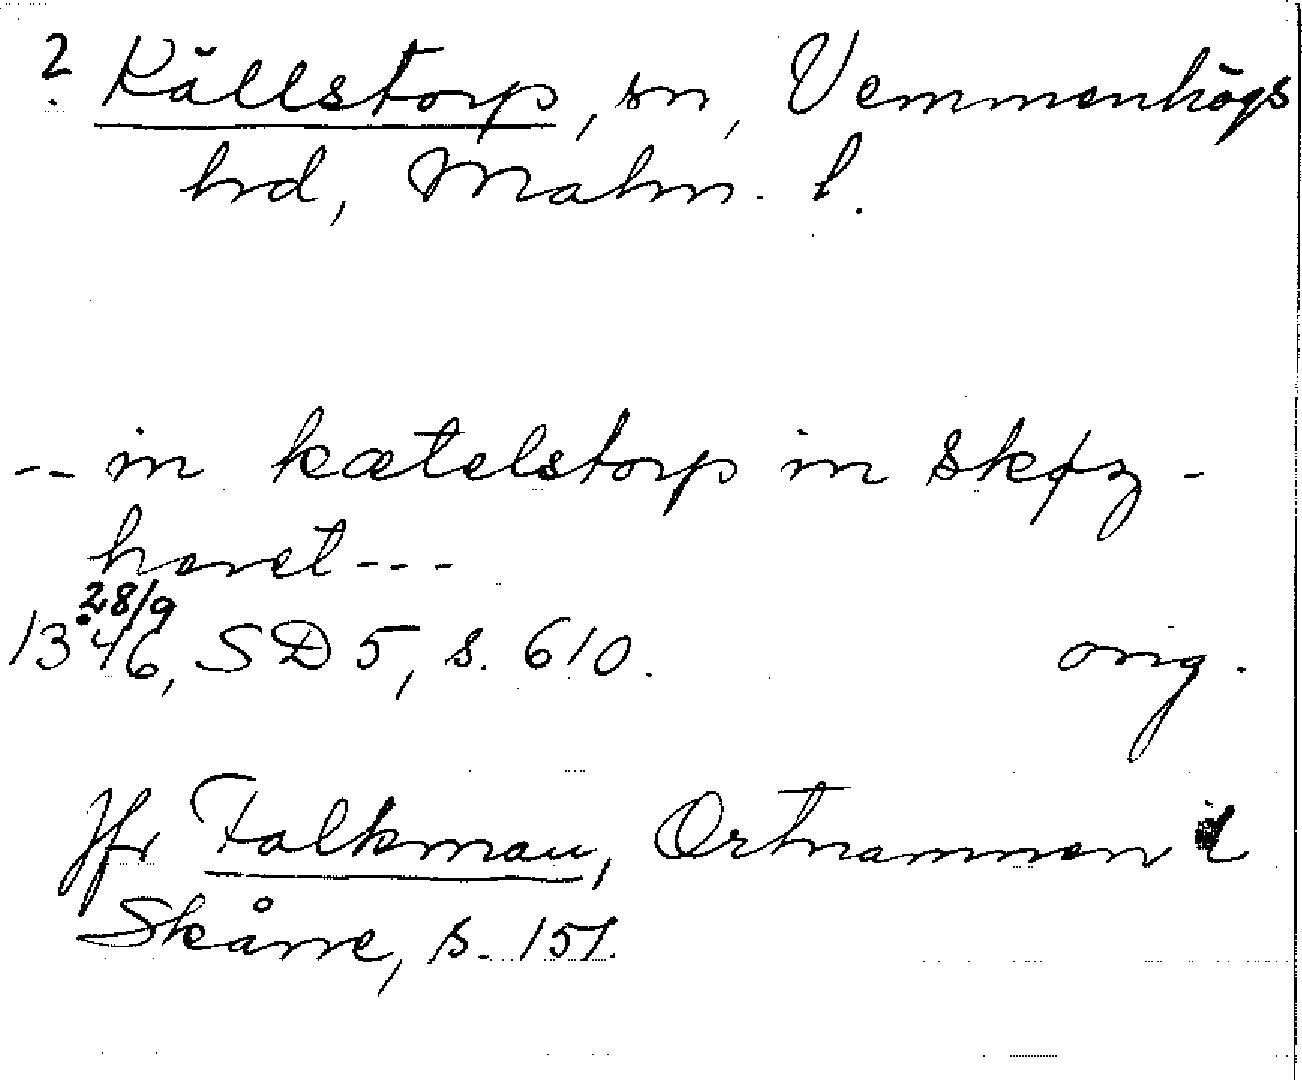 ? Källstorp, sn, Vemmenhögs
hrd, Malm. l.
-- in kætelstorp in skøz-
heret---
1346 28/9, SD 5, s. 610. orig.
Jfr Falkman, Ortnamnen i
Skåne, s. 151.